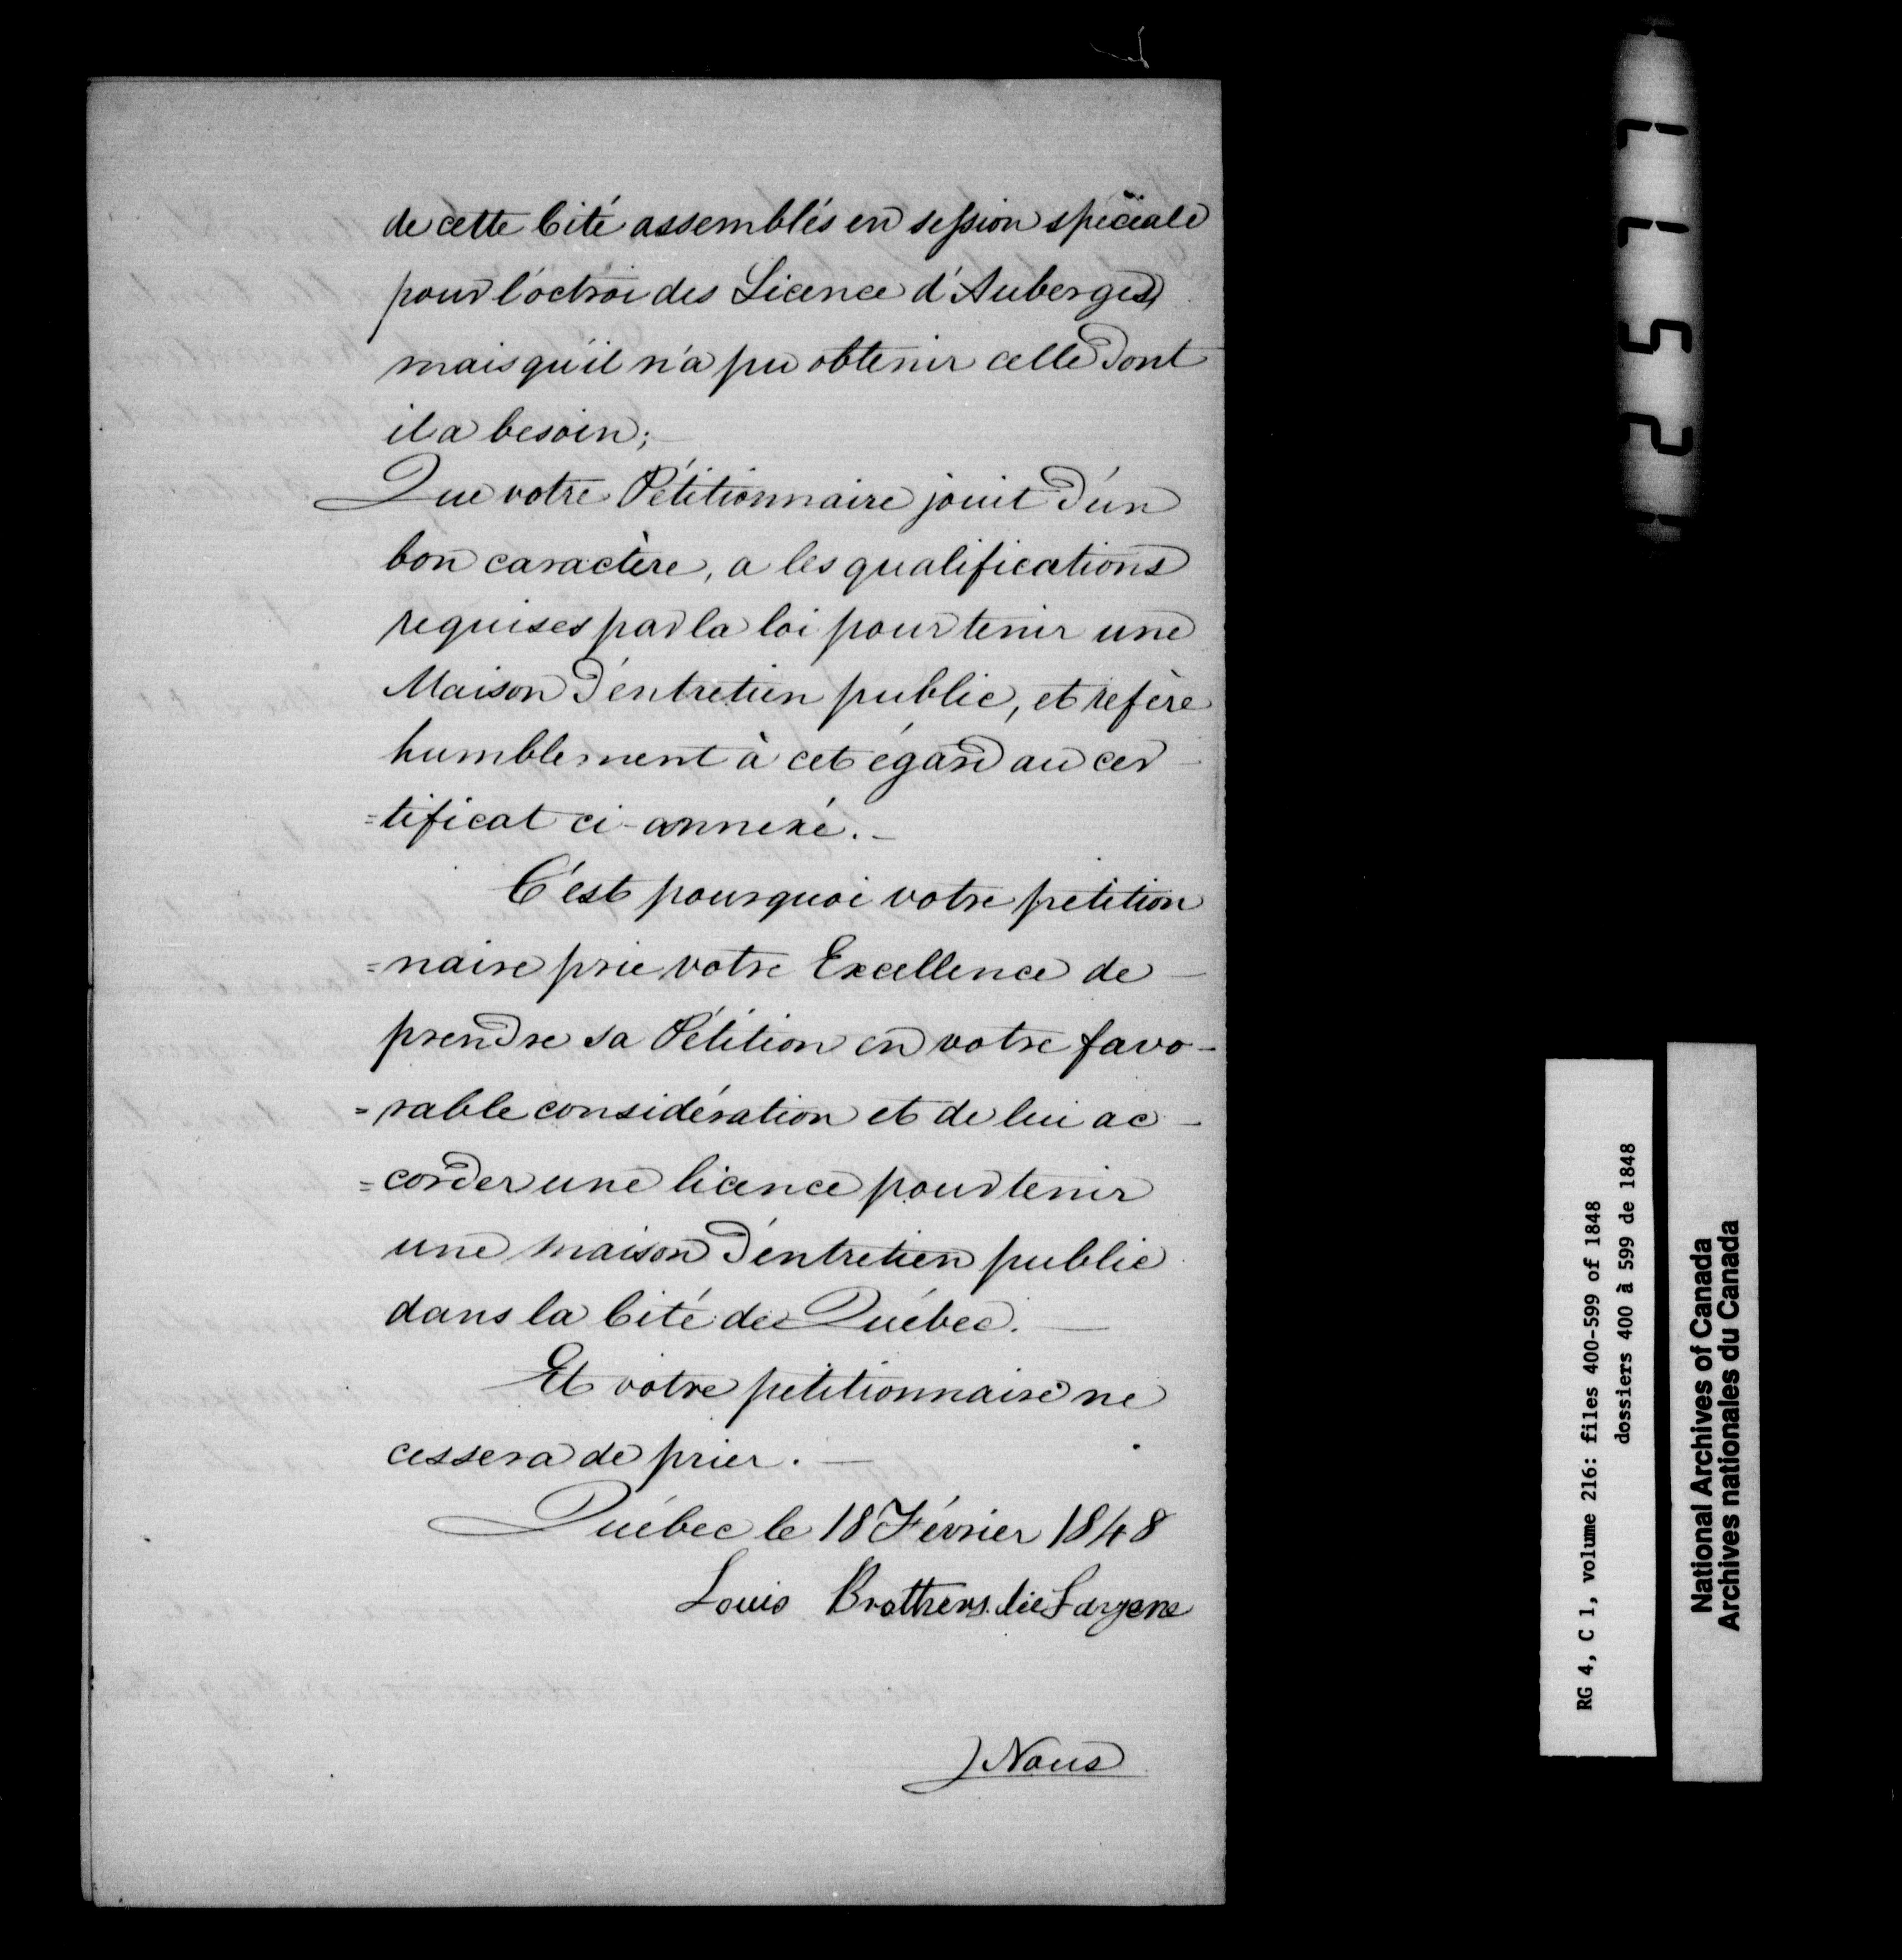 de cette Cité assemblés en session spéciale
pour l'octroi des Licence d'Auberges,
mais qu'il n'a pu obtenir celle dont
il a besoin;
Que votre Pétitionnaire jouit d'un
bon caractère, a les qualifications
requises par la loi pour tenir une
Maison d'entretien public, et refère
humblement à cet égard au cer-
=tificat ci-annexé.
C'est pourquoi votre pétition
=naire prie votre Excellence de
prendre sa Pétition en votre favo-
=rable considération et de lui ac-
=corder une licence pour tenir
une maison d'entretien public
dans la Cité de Québec.
Et votre petitionnaire ne
cessera de prier.
Québec le 18 Février 1848
Louis Brothers dit
Nous
RG 4, C 1, volume 216: files 400-599 of 1848
dossiers 400 à 599 de 1848
National Archives of Canada
Archives nationales du Canada